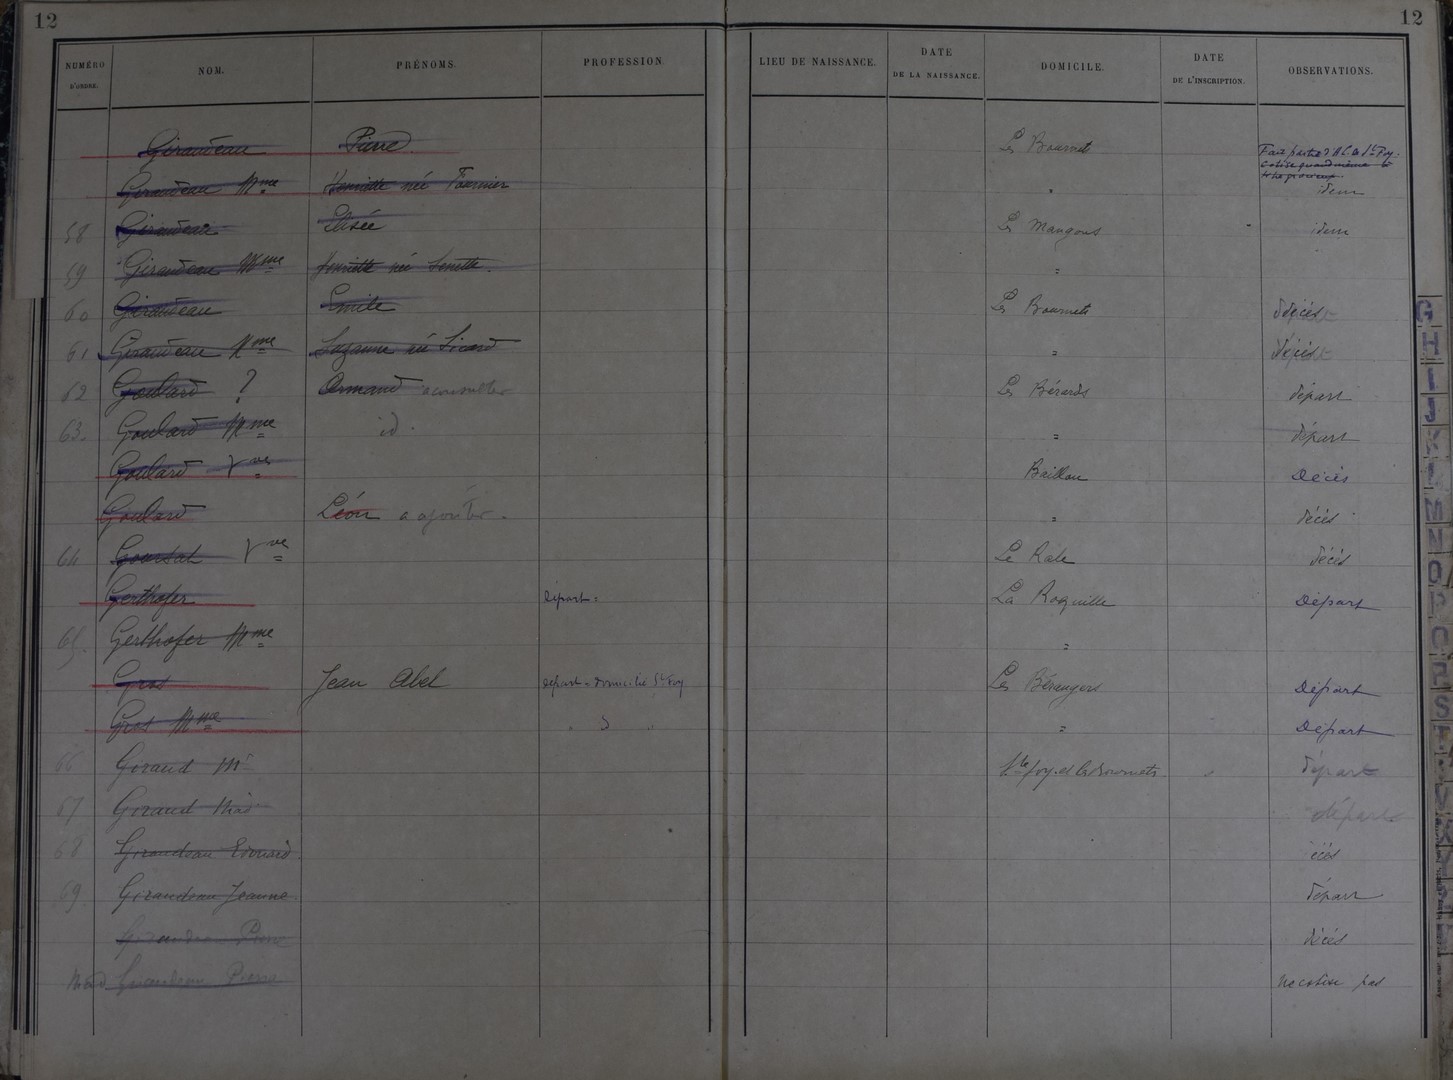 12 12
NUMÉRO D'ORDRE. NOM. PRÉNOMS. PROFESSION LIEU DE NAISSANCE. DATE DE LA NAISSANCE. DOMICILE. DATE DE L'INSCRIPTION. OBSERVATIONS.
Giraudeau Pierre Les Bournets Fait partie d'
Giraudeau Mme Henriette née Fournier " idem
58 Giraudeau Elisée Les Mangons idem
59 Giraudeau Mme Henriette née "
60 Giraudeau Emile Les Bournets décès
61 Giraudeau Mme Suzanne née Sicard " décès
62 Goulard ? Armand a consulter Les Bérards départ
63. Goulard Mme id. " départ
Goulard Vve Baillou Décès
Goulard Léon a ajouter. " décès
64 Goursat Vve Le Rale décès
Gerthofer Départ = La Roquille Départ
65. Gerthofer Mme "
Gros Jean Abel départ = domicilié Ste Foy Les Bérangers Départ
Gros Mme " Départ
66 Giraud Mr Ste foy et les bournets départ
67 Giraud Mad départ
68 Giraudeau Edouard décès
69. Giraudeau Jeanne départ
Giraudeau Pierre décès
Mad Giraudeau Pierre ne cotise pas
G
H
I
J
K
L
M
N
O
P
Q
R
S
T